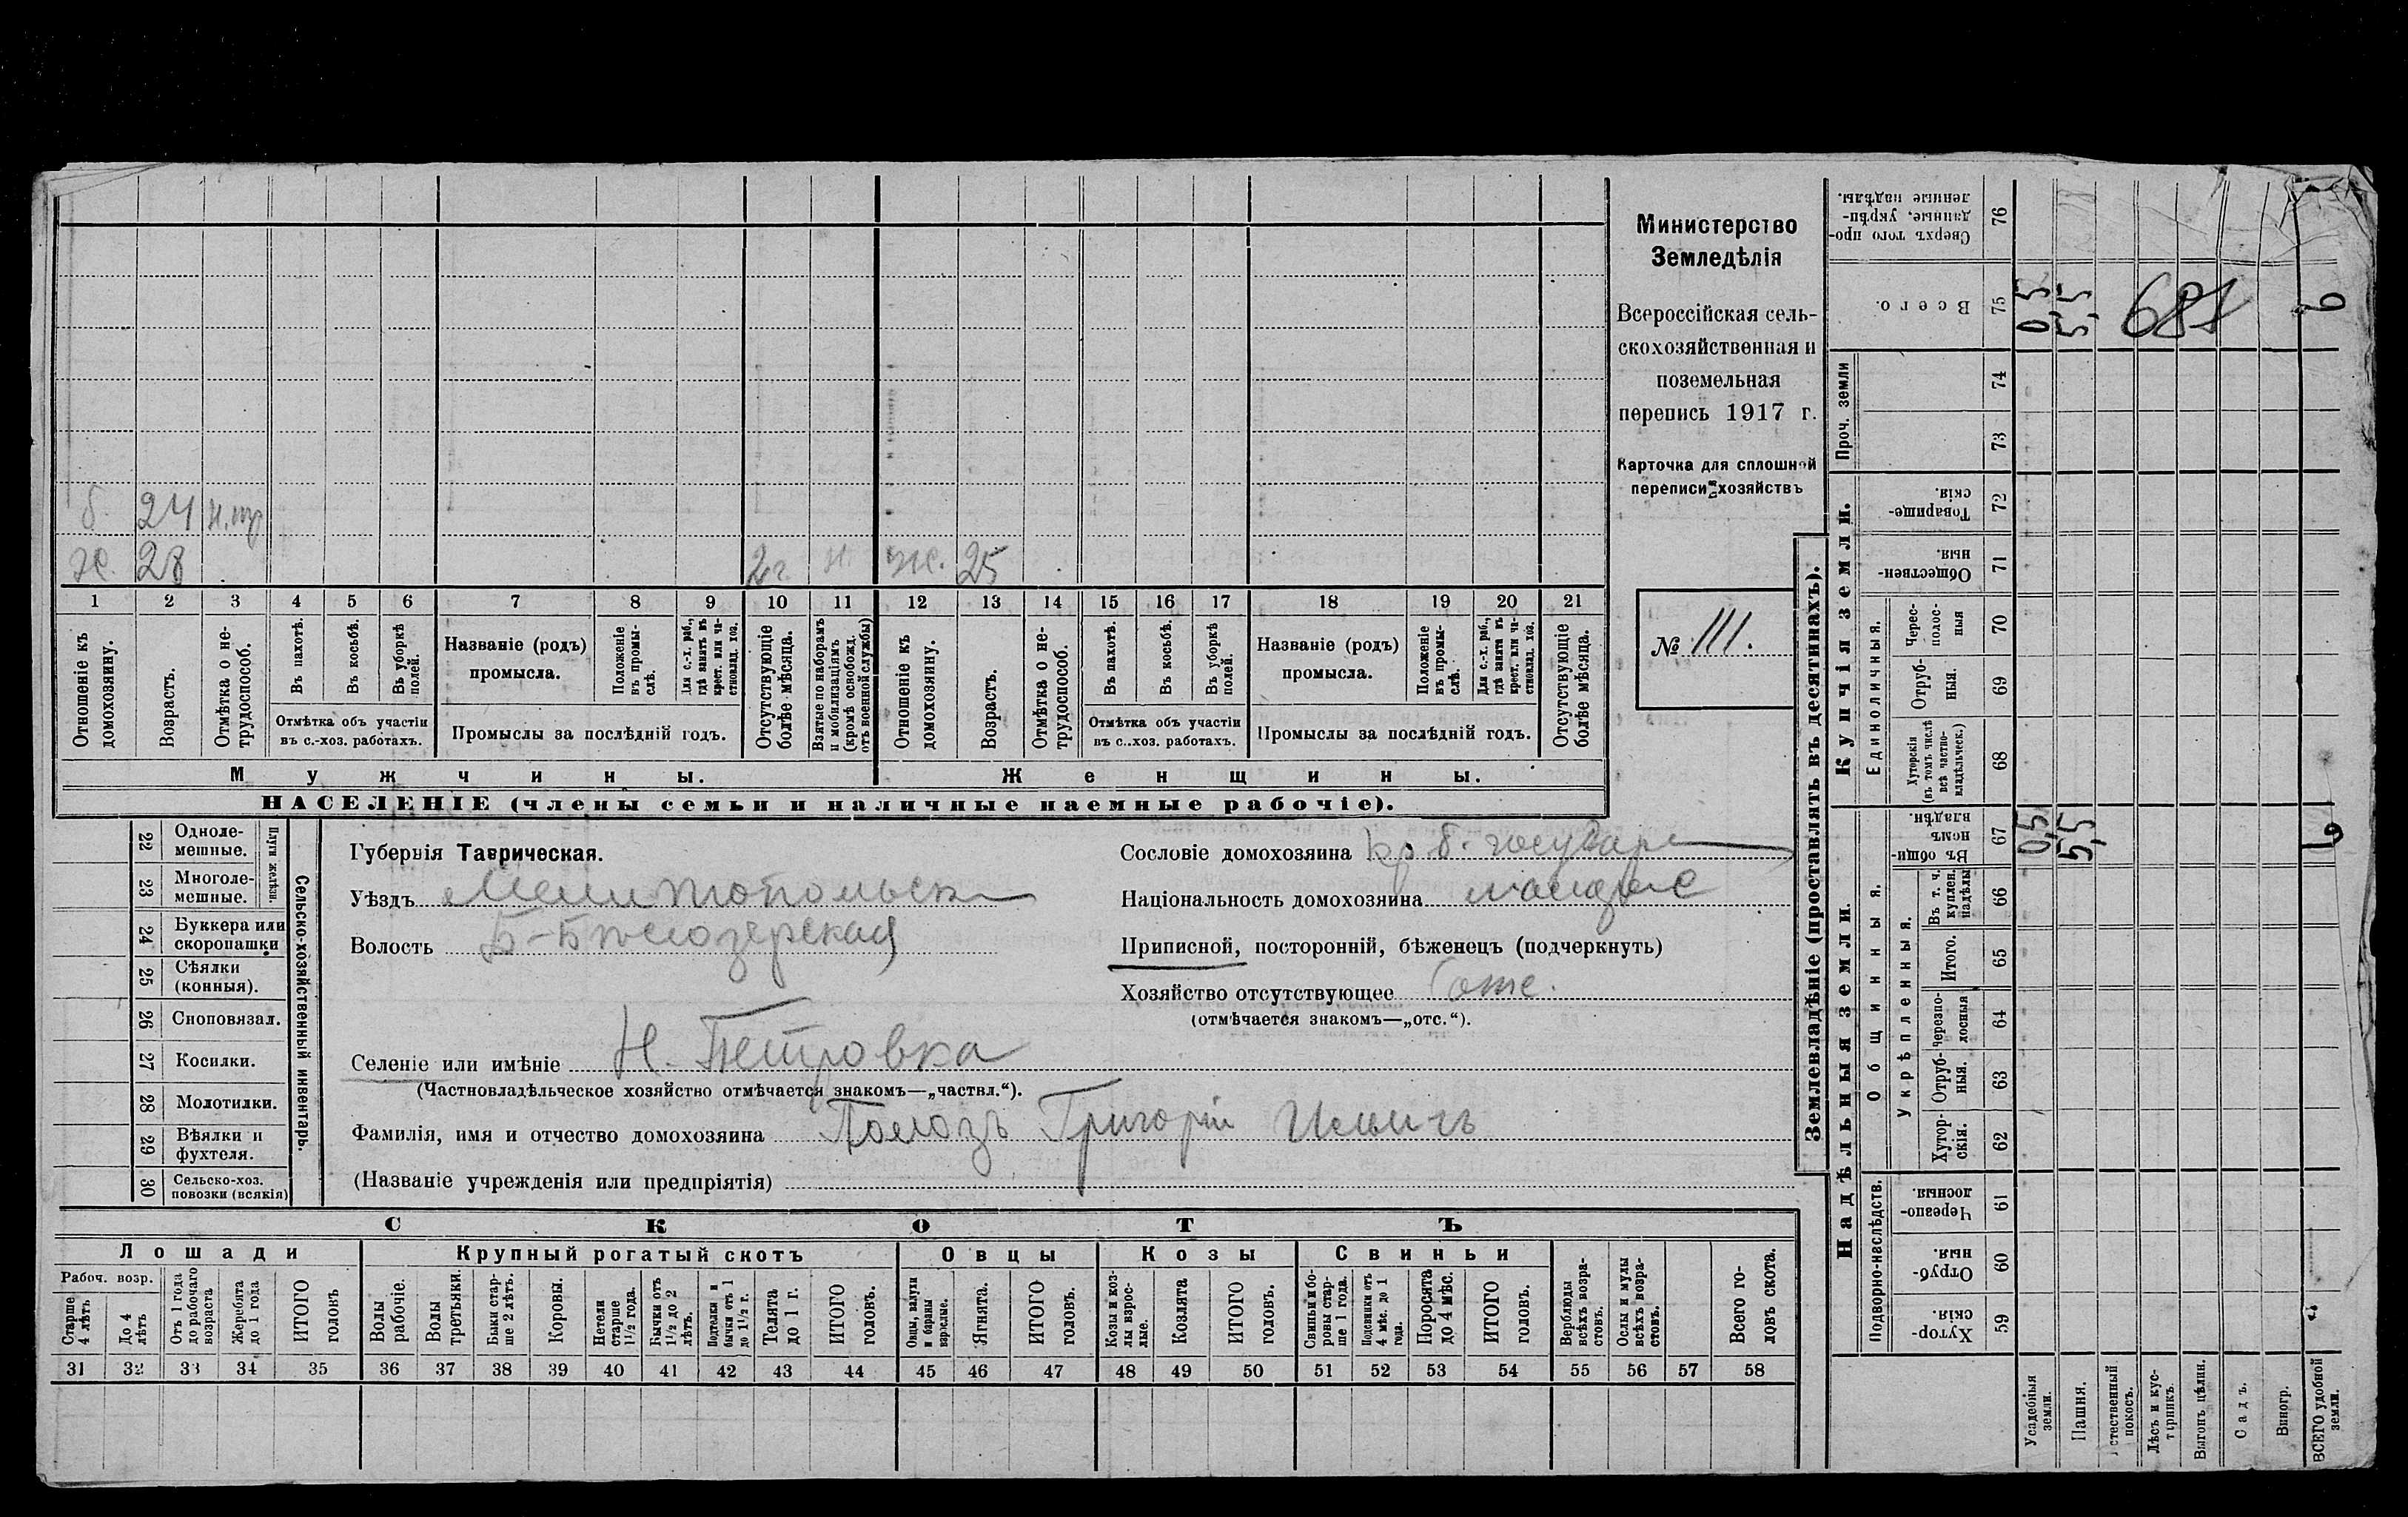 б. 24 н.тр
х. 28 2 г. н. ж. 25
1 2 3 4 5 6 7 8 9 10 11 12 13 14 15 16 17 18 19 20 21
Отношеніе къ домохозяину.
Возрастъ.
Отмѣтка о не-трудоспособ.
Въ пахотѣ.
Въ косьбѣ.
Въ уборкѣ полей.
Отмѣтка объ участіи въ с.-хоз. работахъ.
Названіе (родъ) промысла.
Положеніе въ промы-слѣ.
Для с.-х. раб., гдѣ занятъ въ крест. или ча-стновлад. хоз.
Промыслы за послѣдній годъ.
Отсутствующіе болѣе мѣсяца.
Взятые по наборамъ и мобилизаціямъ (кромѣ освобожд. отъ военной службы)
Отношеніе къ домохозяину.
Возрастъ.
Отмѣтка о не-трудоспособ.
Въ пахотѣ.
Въ косьбѣ.
Въ уборкѣ полей.
Отмѣтка объ участіи въ с..хоз. работахъ.
Названіе (родъ) промысла.
Положеніе въ промы-слѣ.
Для с.-х. раб., гдѣ занята въ крест. или ча-стновлад. хоз.
Промыслы за послѣдній годъ.
Отсутствующіе болѣе мѣсяца.
Мужчины. Женщины.
НАСЕЛЕНІЕ (члены семьи и наличные наемные рабочіе).
Министерство
Земледѣлія
Всероссійская сель-
скохозяйственная и
поземельная
перепись 1917 г.
Карточка для сплошной
переписи хозяйствъ
№ 111.
22 Одноле-мешные.
23 Многоле-мешные.
Плуги желѣзн.
24 Буккера или скоропашки
25 Сѣялки (конныя).
26 Сноповязал.
27 Косилки.
28 Молотилки.
29 Вѣялки и фухтеля.
30 Сельско-хоз. повозки (всякія)
Сельско-хозяйственный инвентарь.
Губернія Таврическая.
Уѣздъ Мелитопольск
Волость Б-Бѣлозерская
Сословіе домохозяина кр б. государ
Національность домохозяина
Приписной, посторонній, бѣженецъ (подчеркнуть)
Хозяйство отсутствующее отс.
(отмѣчается знакомъ—„отс.“).
Селеніе или имѣніе Н. Петровка
(Частновладѣльческое хозяйство отмѣчается знакомъ—„частвл.“).
Фамилія, имя и отчество домохозяина Полозъ Григорій Ильичъ
(Названіе учрежденія или предпріятія)
СКОТЪ
Лошади Крупный рогатый скотъ Овцы Козы Свиньи
Рабоч. возр.
Старше 4 лѣтъ
До 4 лѣтъ
Отъ 1 года до рабочаго возраста
Жеребята до 1 года
ИТОГО головъ
Волы рабочіе.
Волы третьяки.
Быки стар-ше 2 лѣтъ.
Коровы.
Нетели старше 1½ года.
Бычки отъ 1½ до 2 лѣтъ.
Подтелки и бычки отъ 1 до 1½ г.
Телята до 1 г.
ИТОГО головъ.
Овцы, валухи и бараны взрослые.
Ягнята.
ИТОГО головъ.
Козы и коз-лы взрос-лые.
Козлята
ИТОГО головъ.
Свиньи и бо-ровы стар-ше 1 года.
Подсвинки отъ 4 мѣс. до 1 года.
Поросята до 4 мѣс.
ИТОГО головъ.
Верблюды всѣхъ возра-стовъ.
Ослы и мулы всѣхъ возра-стовъ.
Всего го-ловъ скота.
31 32 33 34 35 36 37 38 39 40 41 42 43 44 45 46 47 48 49 50 51 52 53 54 55 56 57 58
Землевладѣніе (проставлять въ десятинахъ).
Купчія земли.
Надѣльныя земли.
Сверхъ того про-данные, укрѣп-ленные надѣлы. 76
Всего. 75 0,5 5,5 681 6
Проч. земли 74
73
Товарище-скія. 72
Обществен-ныя. 71
Единоличныя.
Черес-полос-ныя 70
Отруб-ныя. 69
Хуторскія (въ томъ числѣ всѣ частно-владѣльческ.) 68
Въ общи-номъ владѣн. 67 0,5 5,5 6
Общинныя.
Укрѣпленныя.
Въ т. ч. куплен. надѣлы 66
Итого. 65
Черезпо-лосныя 64
Отруб-ныя. 63
Хутор-скія. 62
Подворно-наслѣдств.
Черезпо-лосныя. 61
Отруб-ныя. 60
Хутор-скія. 59
Усадебныя земли.
Пашня.
стественный покосъ.
Лѣсъ и кус-тарникъ.
Выгонъ цѣлин.
Садъ.
Виногр.
ВСЕГО удобной земли.